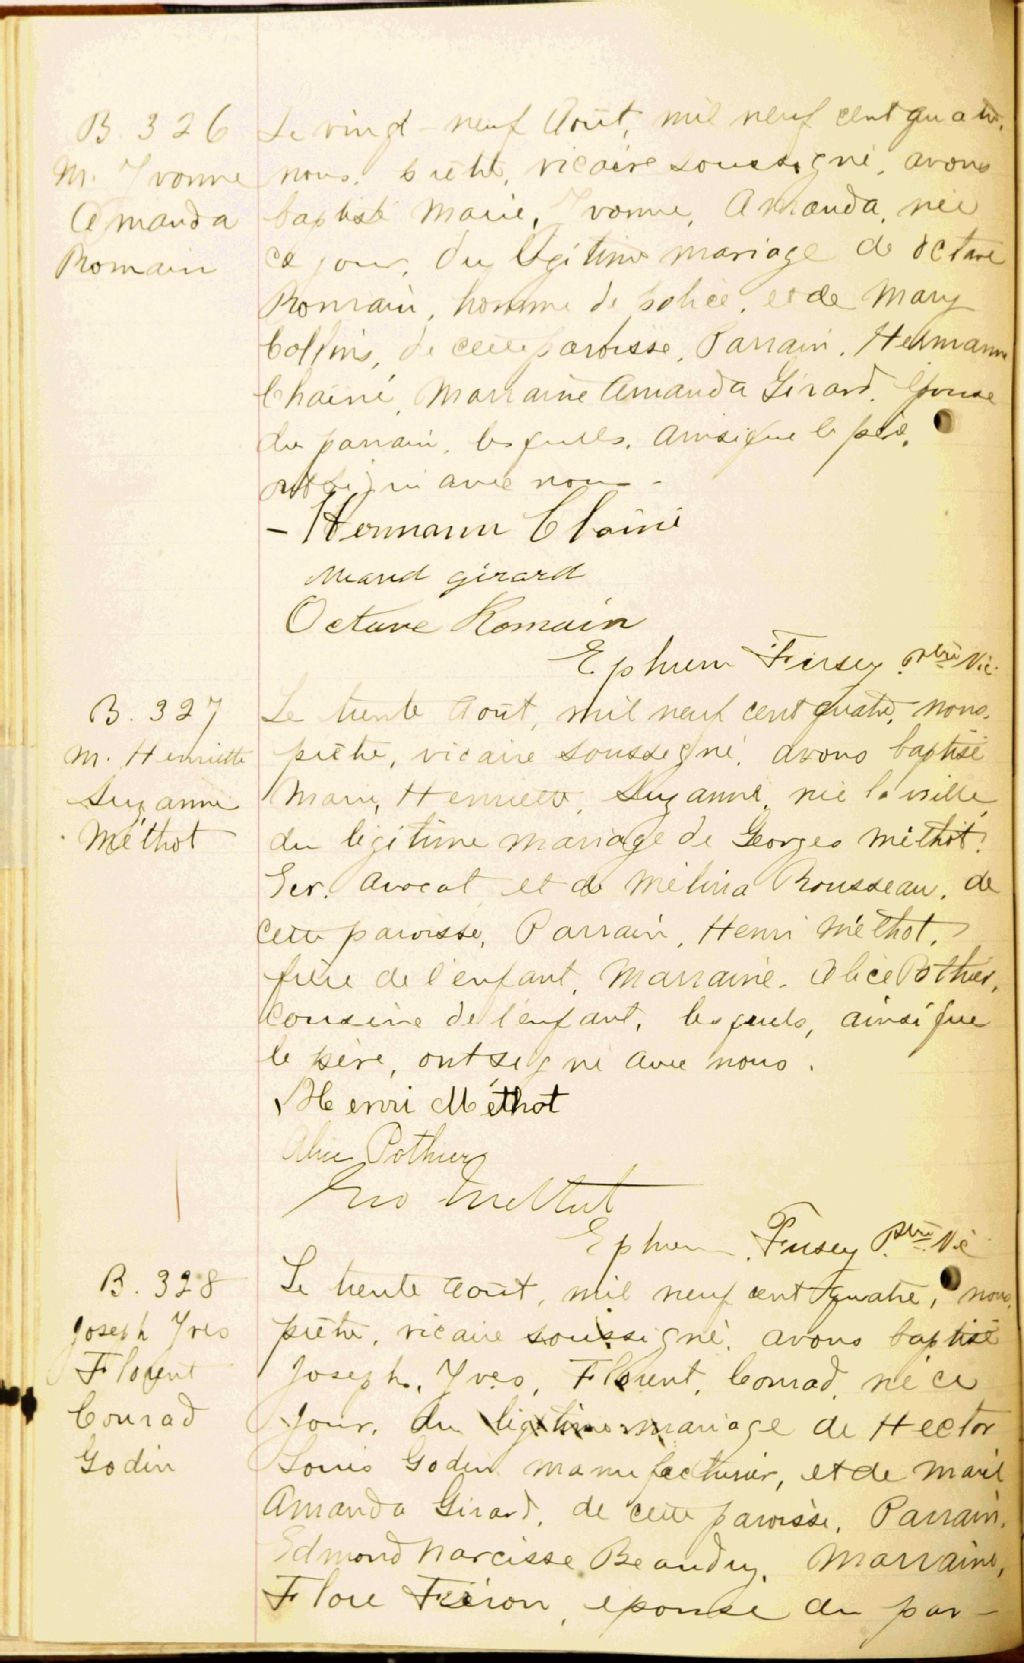 B. 326
M. Yvonne
Amanda
Romain
Le vingt-neuf Août, mil neuf cent quatre,
nous, prêtre, vicaire soussigné, avons
baptisé Marie, Yvonne, Amanda, née
ce jour, du légitime mariage de Octave
Romain, homme de police, et de Mary
Collins, de cette paroisse, Parrain, Hermann
Chainé, Marraine Amanda Girard, épouse
du parrain, lesquels, ainsi que le père,
ont signé avec nous -
- Hermann Chainé
Maud girard
Octave Romain
Ephrem Fusey Ptre Vic.
B. 327
M. Henriette
Suzanne
Méthot
Le trente Août, mil neuf cent quatre, nous,
prêtre, vicaire soussigné, avons baptisé
Marie, Henriette, Suzanne, née la veille,
du légitime mariage de Georges Méthot,
Ecr. Avocat et de Mélina Rousseau, de
cette paroisse, Parrain, Henri Méthot,
frère de l'enfant, Marraine, Alice Pothier,
cousine de l'enfant, lesquels, ainsi que
le père, ont signé avec nous.
Henri Méthot
Alice Pothier
Geo Methot
Ephrem Fusey Ptre Vic
B. 328
Joseph Yves
Florent
Conrad
Godin
Le trente Août, mil neuf cent quatre, nous,
prêtre, vicaire soussigné, avons baptisé
Joseph, Yves, Florent, Conrad, né ce
jour, du légitime mariage de Hector
Louis Godin manufacturier, et de Marie
Amanda Girard, de cette paroisse, Parrain,
Edmond Narcisse Beaudry, Marraine,
Flore Féron, épouse du par-